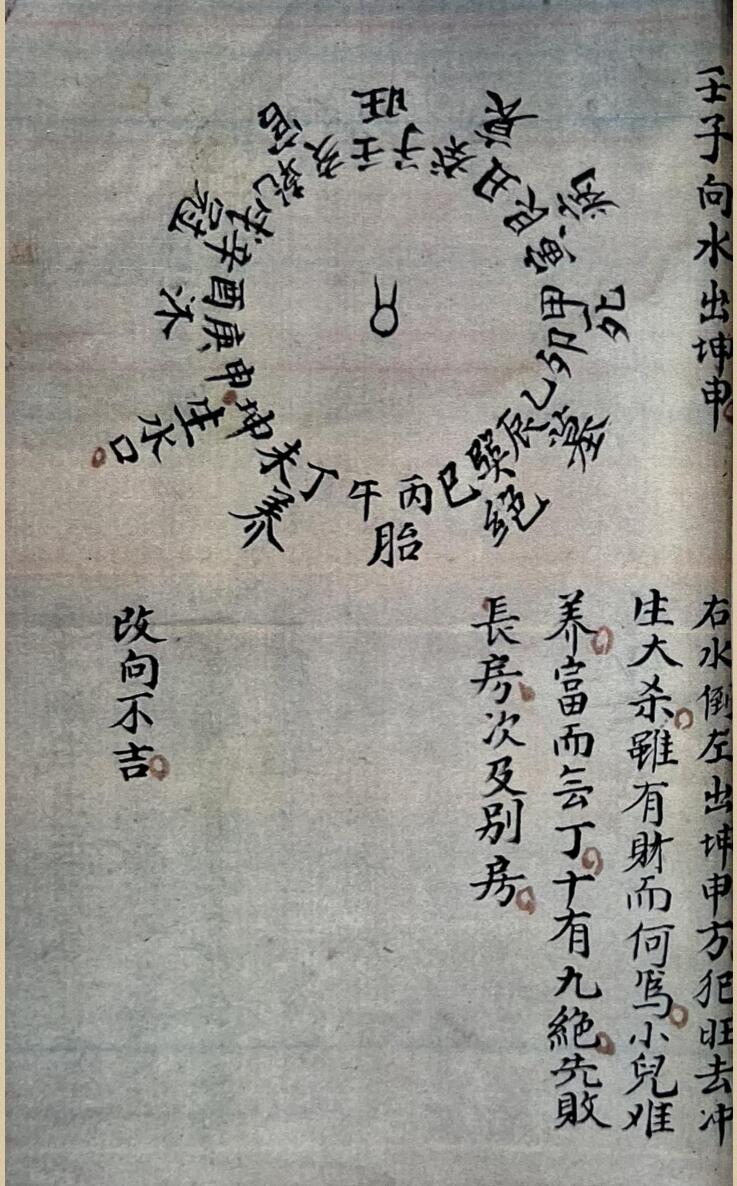 壬子向水出坤申
右水倒左出坤申方犯旺去冲
生大杀虽有财而何为小兒难
养富而会丁十有九絶先敗
長房次及别房
改向不吉
旺
衰
病
死
墓
絶
胎
养
生水口
沐
冠
官
壬子
癸丑
艮寅
甲卯
乙辰
巽巳
丙午
丁未
坤申
庚酉
辛戌
乾亥